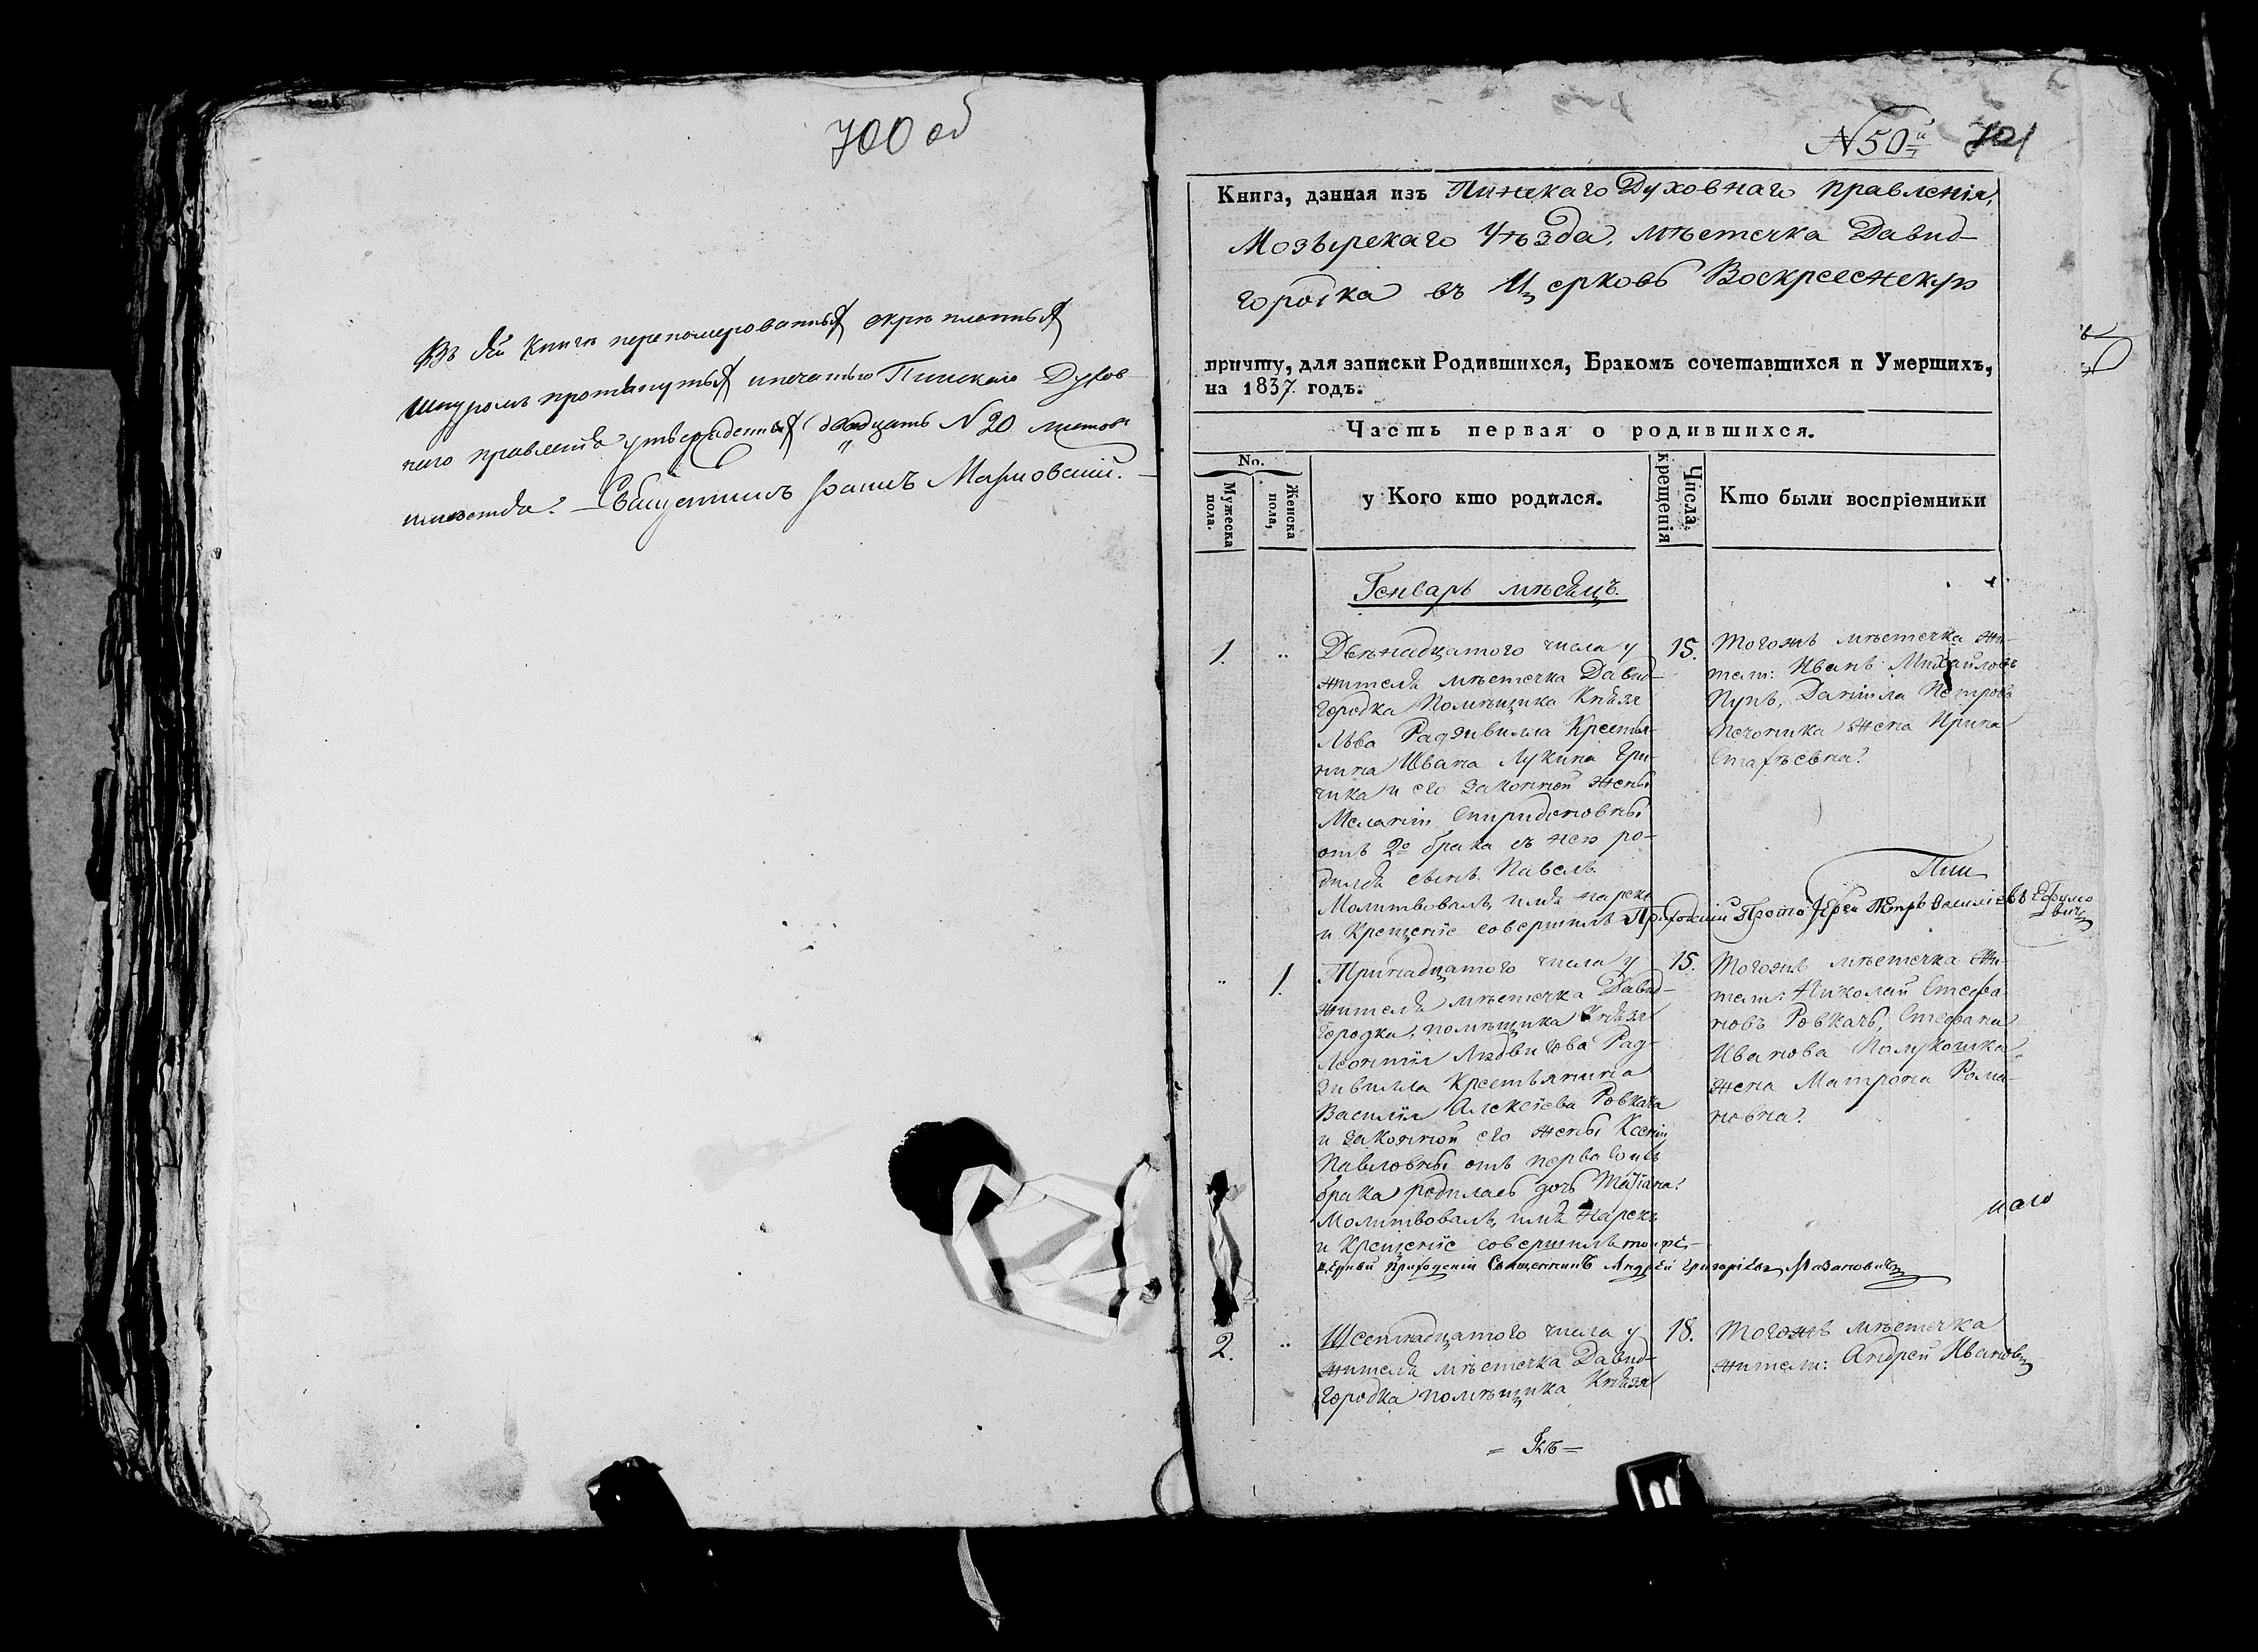 700 об
Въ сей книгѣ переномерованныя скрѣпленныя
шнуромъ протянутыя и печатью Пинскаго Духов-
наго правленія утвержденныя двадцать N 20 листовъ
имѣется. Священникъ Іоаннъ
N 50й 701
Книга, данная изъ Пинскаго Духовнаго правленія,
Мозырскаго Уѣзда, мѣстечка Давид-
городка въ Церковь Воскресенскую
причту, для записки Родившихся, Бракомъ сочетавшихся и Умершихъ,
на 1837 годъ.
Часть первая о родившихся.
No.
Мужеска пола.
Женска пола,
у Кого кто родился.
Числа. крещенія
Кто были воспріемники
Генварь мѣсяцъ.
1. ..
Двѣнадцатого числа у
жителя мѣстечка Давид-
городка Помѣщика Князя
Льва Радзивилла Крестья-
нина Ивана Лукина Гри-
чика и его законной жены
Меланіи Спиридоновны
отъ 2го брака съ нею ро-
дился сынъ Павелъ.
Молитвовалъ, имя нареклъ
и Крещеніе совершилъ Приходскій Протоіерей Петръ Василіевъ
15.
Тогожъ мѣстечка жи-
тели: Иванъ Михайловъ
Пупъ, Даніила Петрова
жена Ирина
Пин
.. 1.
Тринадцатого числа у
жителя мѣстечка Давид-
городка, помѣщика Князя
Леонтія Людвигова Рад-
зивилла Крестьянина
Василія Алексіева Ровкача
и законной его жены Ксеніи
Павловны отъ перваго
брака родилась дочь Татіана.
Молитвовалъ, имя нарекъ
и Крещеніе совершилъ тойже
церкви Приходскій Священникъ Андрей Григоріевъ Мазановичъ
15.
Тогожъ мѣстечка жи-
тели: Николай Стефа-
новъ Ровкачъ, Стефана
Иванова Полукошка
жена Матрона Рома-
новна.
наго
2. ..
Шестнадцатого числа у
жителя мѣстечка Давид-
городка помѣщика Князя
18.
Тогожъ мѣстечка
жители: Андрей Ивановъ